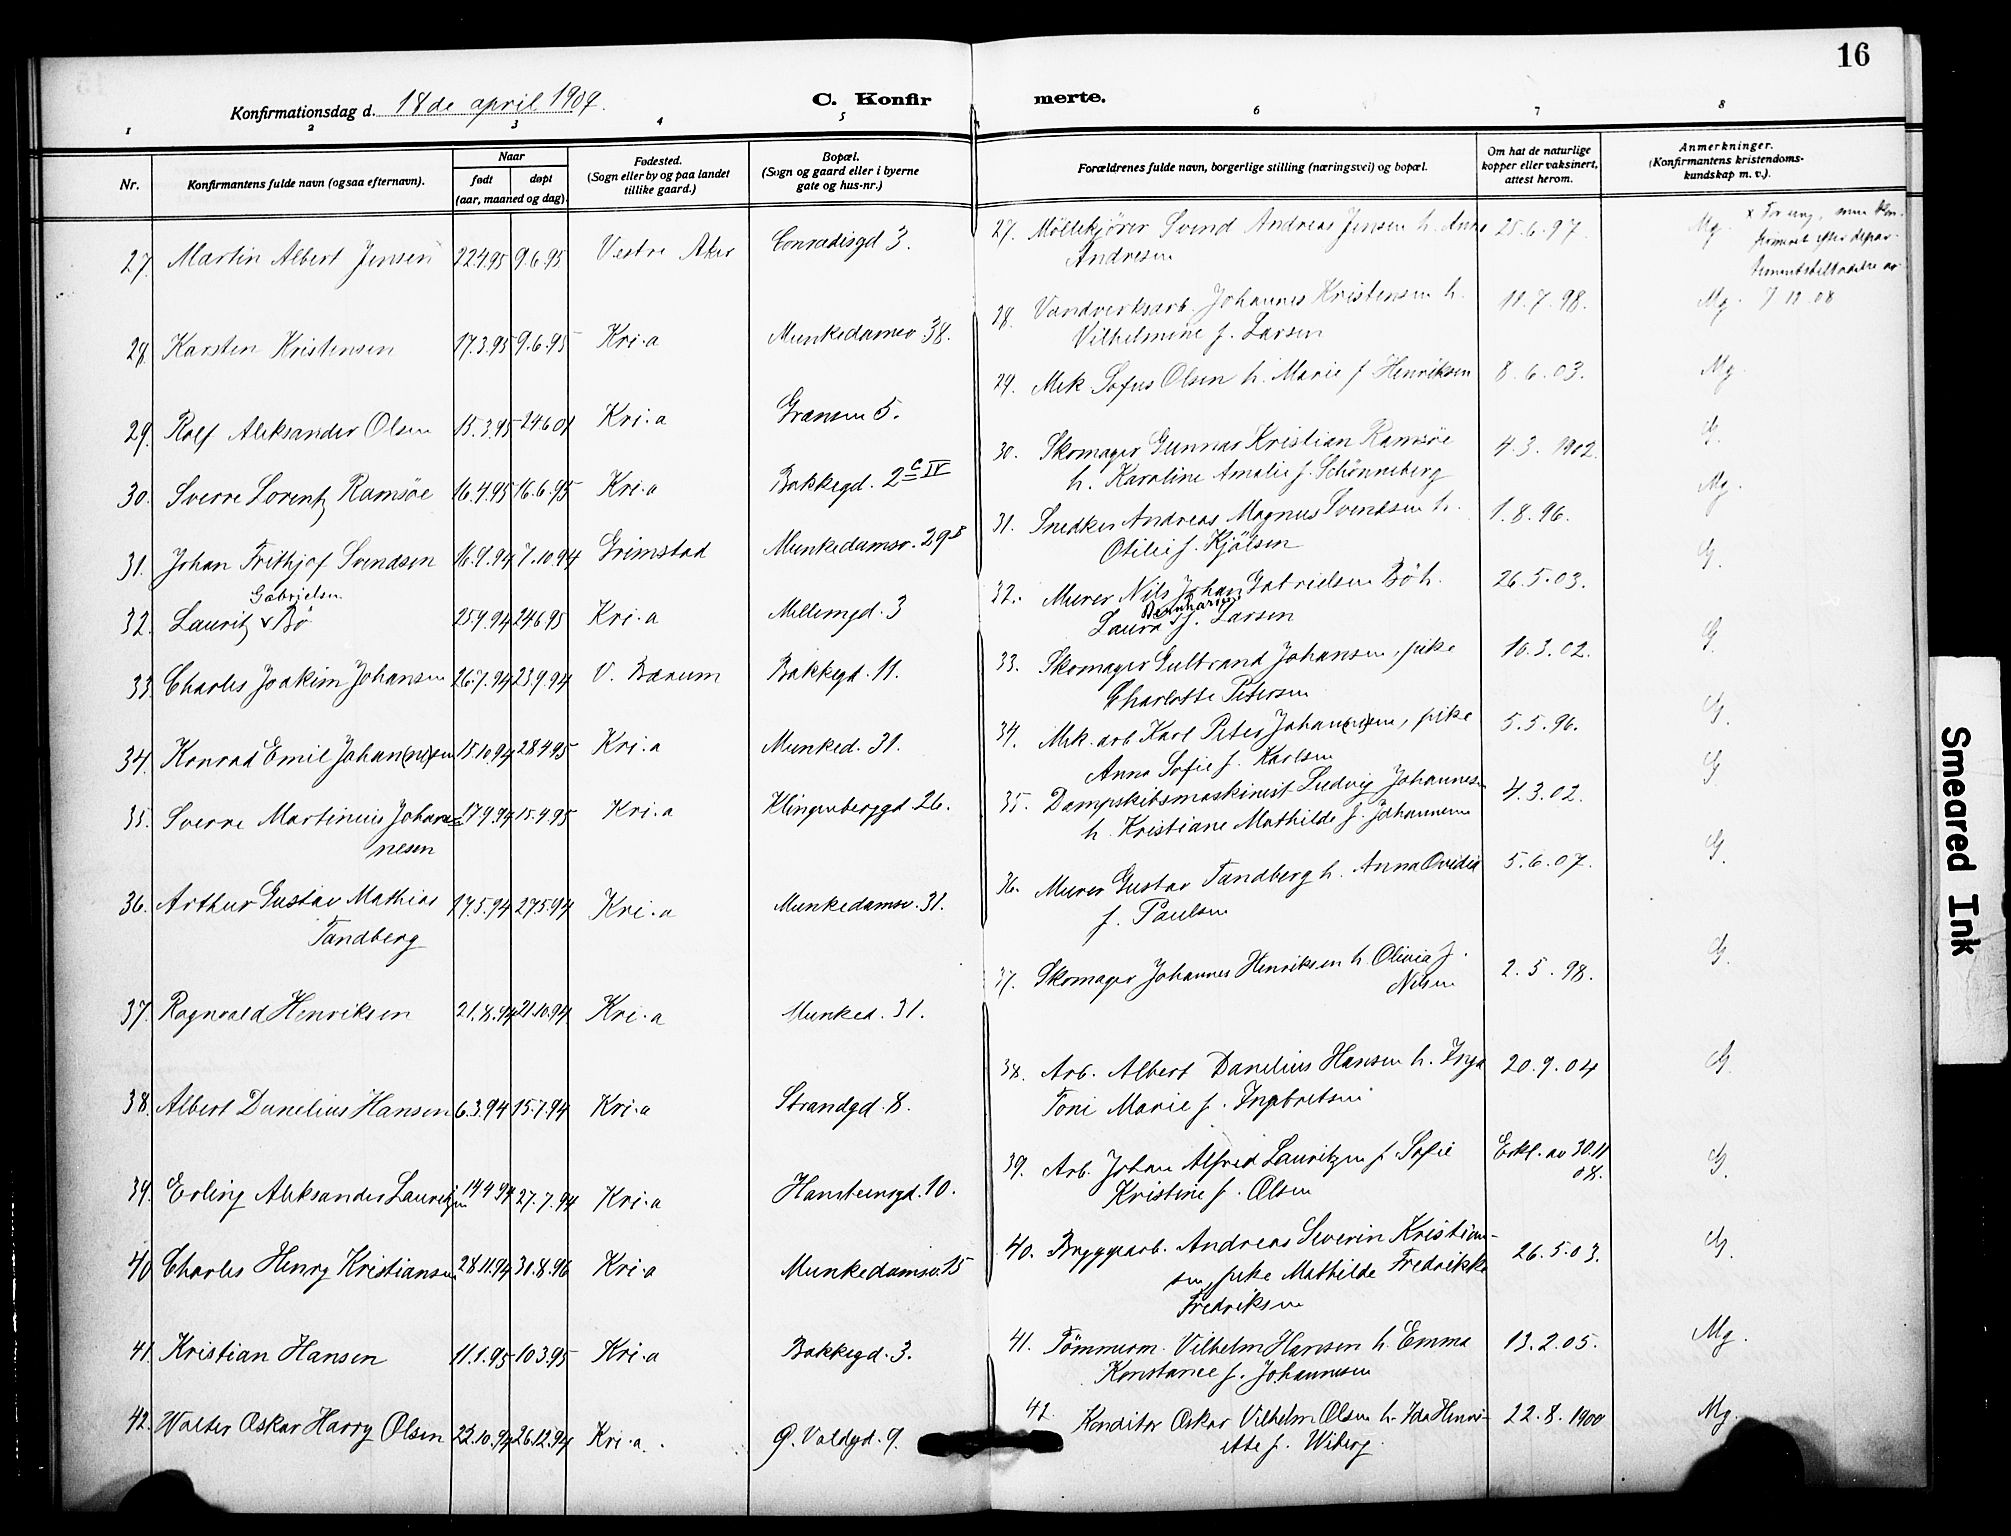 16
Konfirmationsdag d. 18de april 1909.
C. Konfir
merte.
1 2 3 4 5 6 7 8
Nr.
Konfirmantens fulde navn (ogsaa efternavn).
Naar
født døpt
(aar, maaned og dag).
Fødested.
(Sogn eller by og paa landet
tillike gaard.)
Bopæl.
(Sogn og gaard eller i byerne
gate og hus-nr.)
Forældrenes fulde navn, borgerlige stilling (næringsvei) og bopæl.
Om hat de naturlige
kopper eller vaksinert,
attest herom.
Anmerkninger.
(Konfirmantens kristendoms-
kundskap m. v.).
27. Martin Albert Jensen 22.4.95 9.6.95 Vestre Aker Conradisgd 3.
28. Karsten Kristensen 17.3.95 9.6.95 Kri.a Munkedamsv 38.
29. Rolf Aleksander Olsen 15.3.95 24.6.01 Kri.a Grænsen 5.
30. Sverre Lorentz Ramsöe 16.4.95 16.6.95 Kri.a Bakkegd. 2 c IV
31. Johan Frithjof Svendsen 16.9.94 7.10.94 Grimstad Munkedamsv. 29
Gabrielsen
32. Lauritz v Bö 25.9.94 24.6.95 Kri.a Mellemgd. 3
33. Charles Joakim Johansen 26.7.94 23.9.94 V. Bærum Bakkegd. 11.
34. Konrad Emil Johan(ne)sen 15.10.94 28.4.95 Kri.a Munked. 31.
35. Sverre Martinius Johan-
nesen 17.9.94 15.4.95 Kri.a Klingenberggd 26.
36. Arthur Gustav Mathias
Tandberg 17.5.94 27.5.94 Kri.a Munkedamsv. 31.
37. Ragnvald Henriksen 21.8.94 21.10.94 Kri.a Munked. 31.
38. Albert Danelius Hansen 6.3.94 15.7.94 Kri.a Strandgd. 8.
39. Erling Aleksander Lauritzen 14.4.94 27.7.94 Kri.a Hansteensgd. 10.
40. Charles Henry Kristiansen 28.11.94 30.8.96 Kri.a Munkedamsv. 15
41. Kristian Hansen 11.1.95 10.3.95 Kri.a Bakkegd. 3.
42. Walter Oskar Harry Olsen 23.10.94 26.12.94 Kri.a. Valdgd. 9.
27. Möllekjörer Svend Andreas Jensen h. Anna 25.6.97. Mg.
Andresen
x For ung, men kon-
firmert efter depar-
tementstilladelse av
7 11 08
28. Vandverksarb. Johannes Kristensen h. 11.7.98. Mg.
Vilhelmine f. Larsen
29. Mek Sofus Olsen h. Marie f Henriksen 8.6.03. Mg.
30. Skomager Gunnar Kristian Ramsöe 4.3.1902. G.
h. Karoline Amalie f. Schönneberg
31. Snedker Andreas Magnus Svendsen h. 1.8.96. Mg.
Otilie f. Kjölsen
32. Murer Nils Johan Gabrielsen Bö h. 26.5.03. G.
Laura f. Larsen
33. Skomager Gulbrand Johansen, pike 16.3.02. G.
Charlotte Petersen
34. Mek. arb Karl Peter Johan(ne)sen, pike 5.5.96. G.
Anna Sofie f. Karlsen
35. Dampskibsmaskinist Ludvig Johannesen 4.3.02. G
h. Kristiane Mathilde f. Johannesen
36. Murer Gustav Tandberg h. Anna Ovidia 5.6.07. G.
f. Paulsen
37. Skomager Johannes Henriksen h. Olivia f. 2.5.98. G.
Nilsen
38. Arb. Albert Danelius Hansen h. Inga 20.9.04 G.
Toni Marie f. Ingebretsen
39. Arb. Johan Alfred Lauritzen f Sofie Erkl. av 30.11 G.
Kristine f. Olsen 08.
40. Bryggearb. Andreas Severin Kristian- 26.5.03. G.
sen, pike Mathilde Fredrikke
Fredriksen
41. Tömmerm. Vilhelm Hansen h. Emma 13.2.05. Mg.
Konstance f. Johannesen
42. Konditor Oskar Vilhelm Olsen h. Ida Henri- 22.8.1900 Mg.
ette f. Wiberg.
Smeared Ink